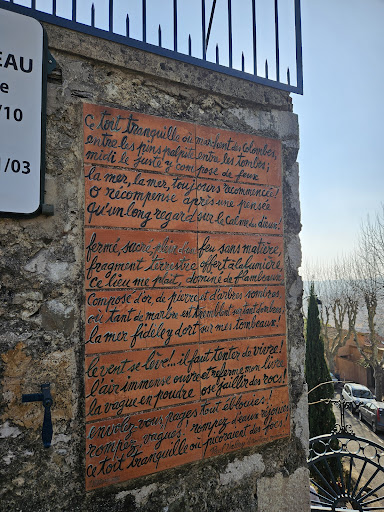 EAU
e
/10
1/03
Ce toit tranquille où marchent des Colombes,
entre les pins palpite entre les tombes;
midi le juste y compose de feux
la mer, la mer, toujours recommencée!
O récompense après une pensée
qu'un long regard sur le calme des dieux!
fermé, sacré, plein d'un feu sans matière,
fragment terrestre offert à la lumière
ce lieu me plaît, dominé de flambeaux
Composé d'or de pierre et d'arbres sombres,
où tant de marbre est tremblant sur tant d'ombres
la mer fidèle y dort sur mes tombeaux!
le vent se lève!.. il faut tenter de vivre!
l'air immense ouvre et referme mon livre
la vague en poudre ose jaillir des rocs!
envolez-vous pages tout éblouies!
rompez, vagues! rompez d'eaux réjouies
ce toit tranquille où picoraient des focs!